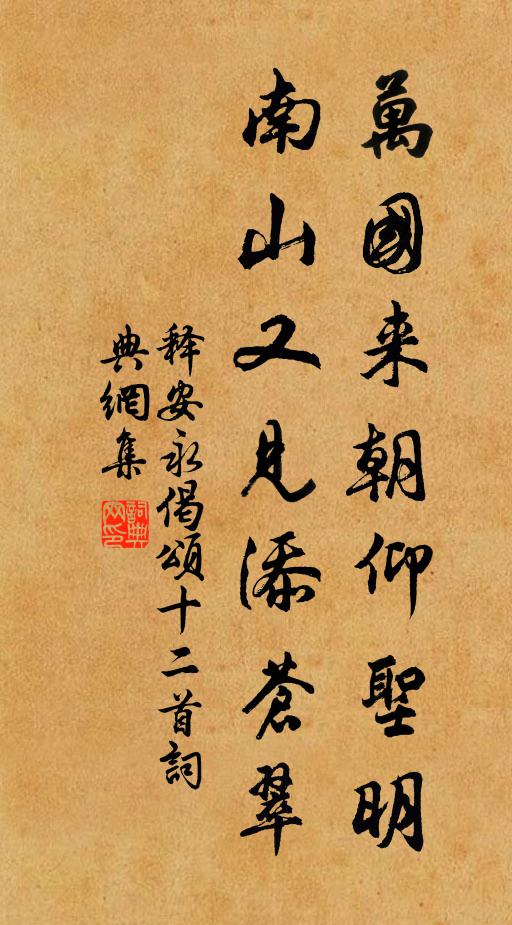 萬國来朝仰聖明
南山又見添蒼翠
释安永偈頌十二首詞
典網集
詞典
网印